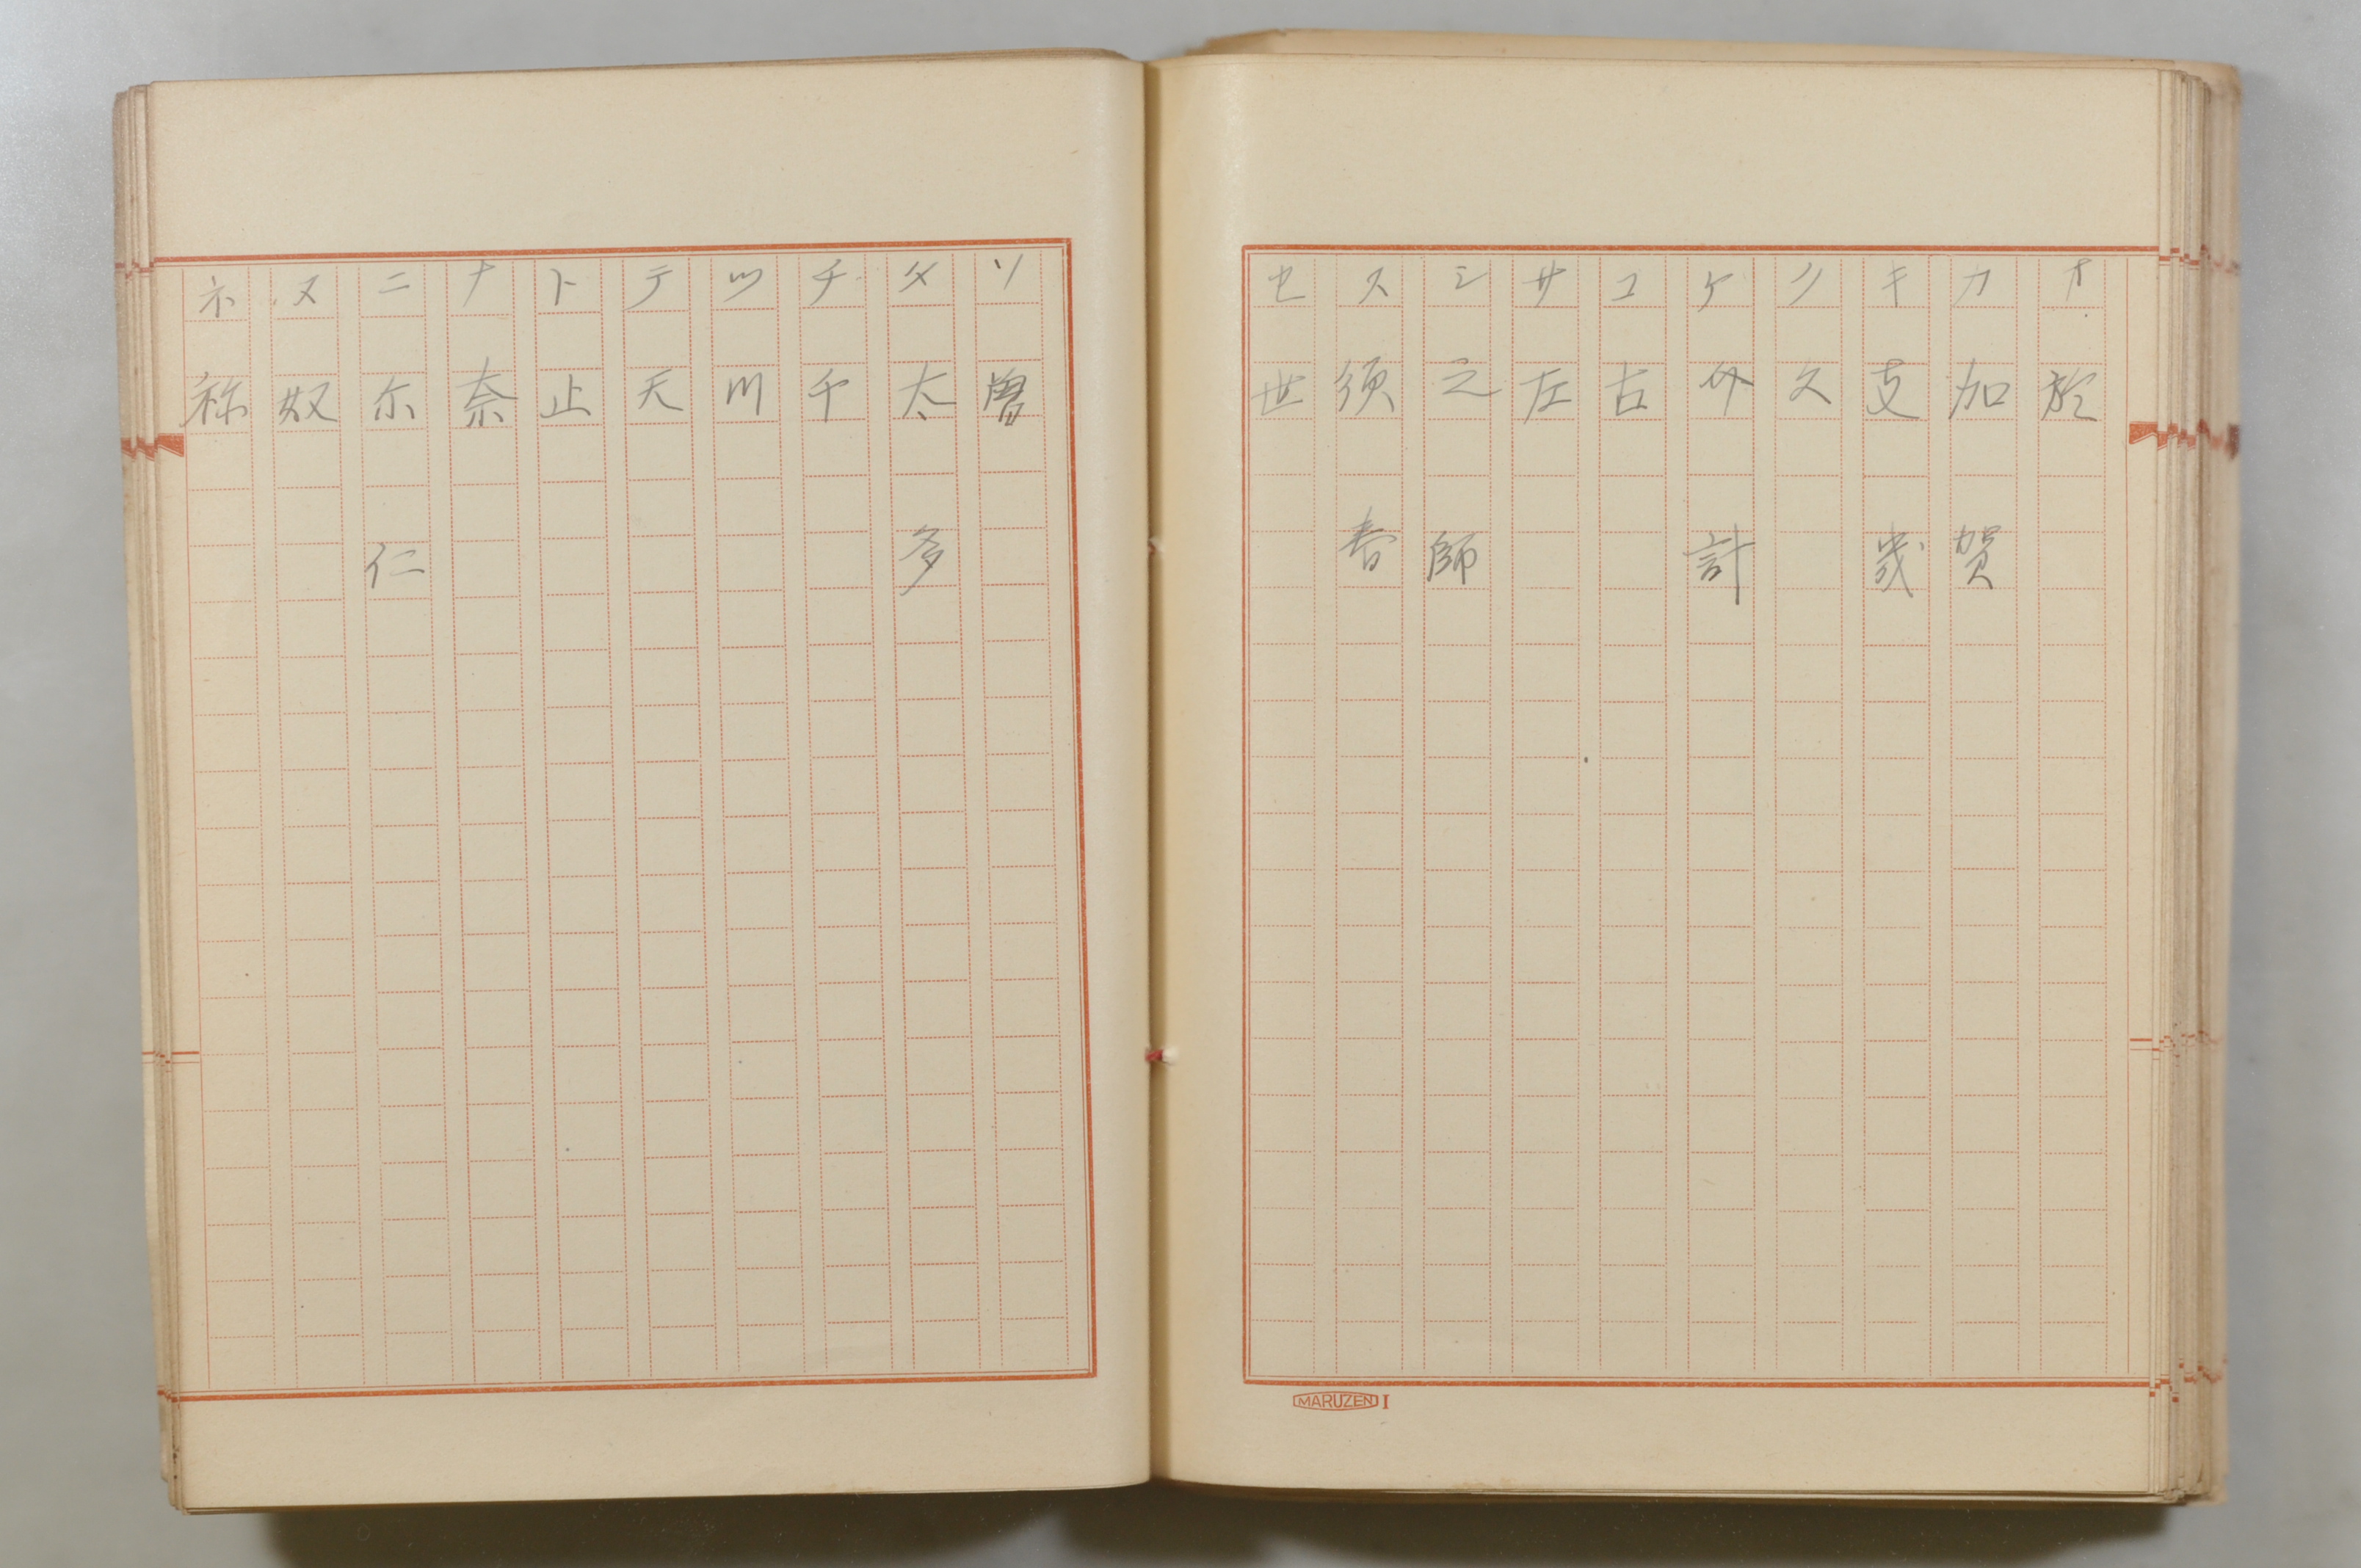 オ 於
カ 加 賀
キ 支 幾
ク 久
ケ 介 計
コ 古
サ 左
シ 之 師
ス 須 春
セ 世
MARUZEN I
ソ 曽
タ 太 多
チ 千
ツ 川
テ 天
ト 止
ナ 奈
ニ 尓 仁
ヌ 奴
ネ 祢